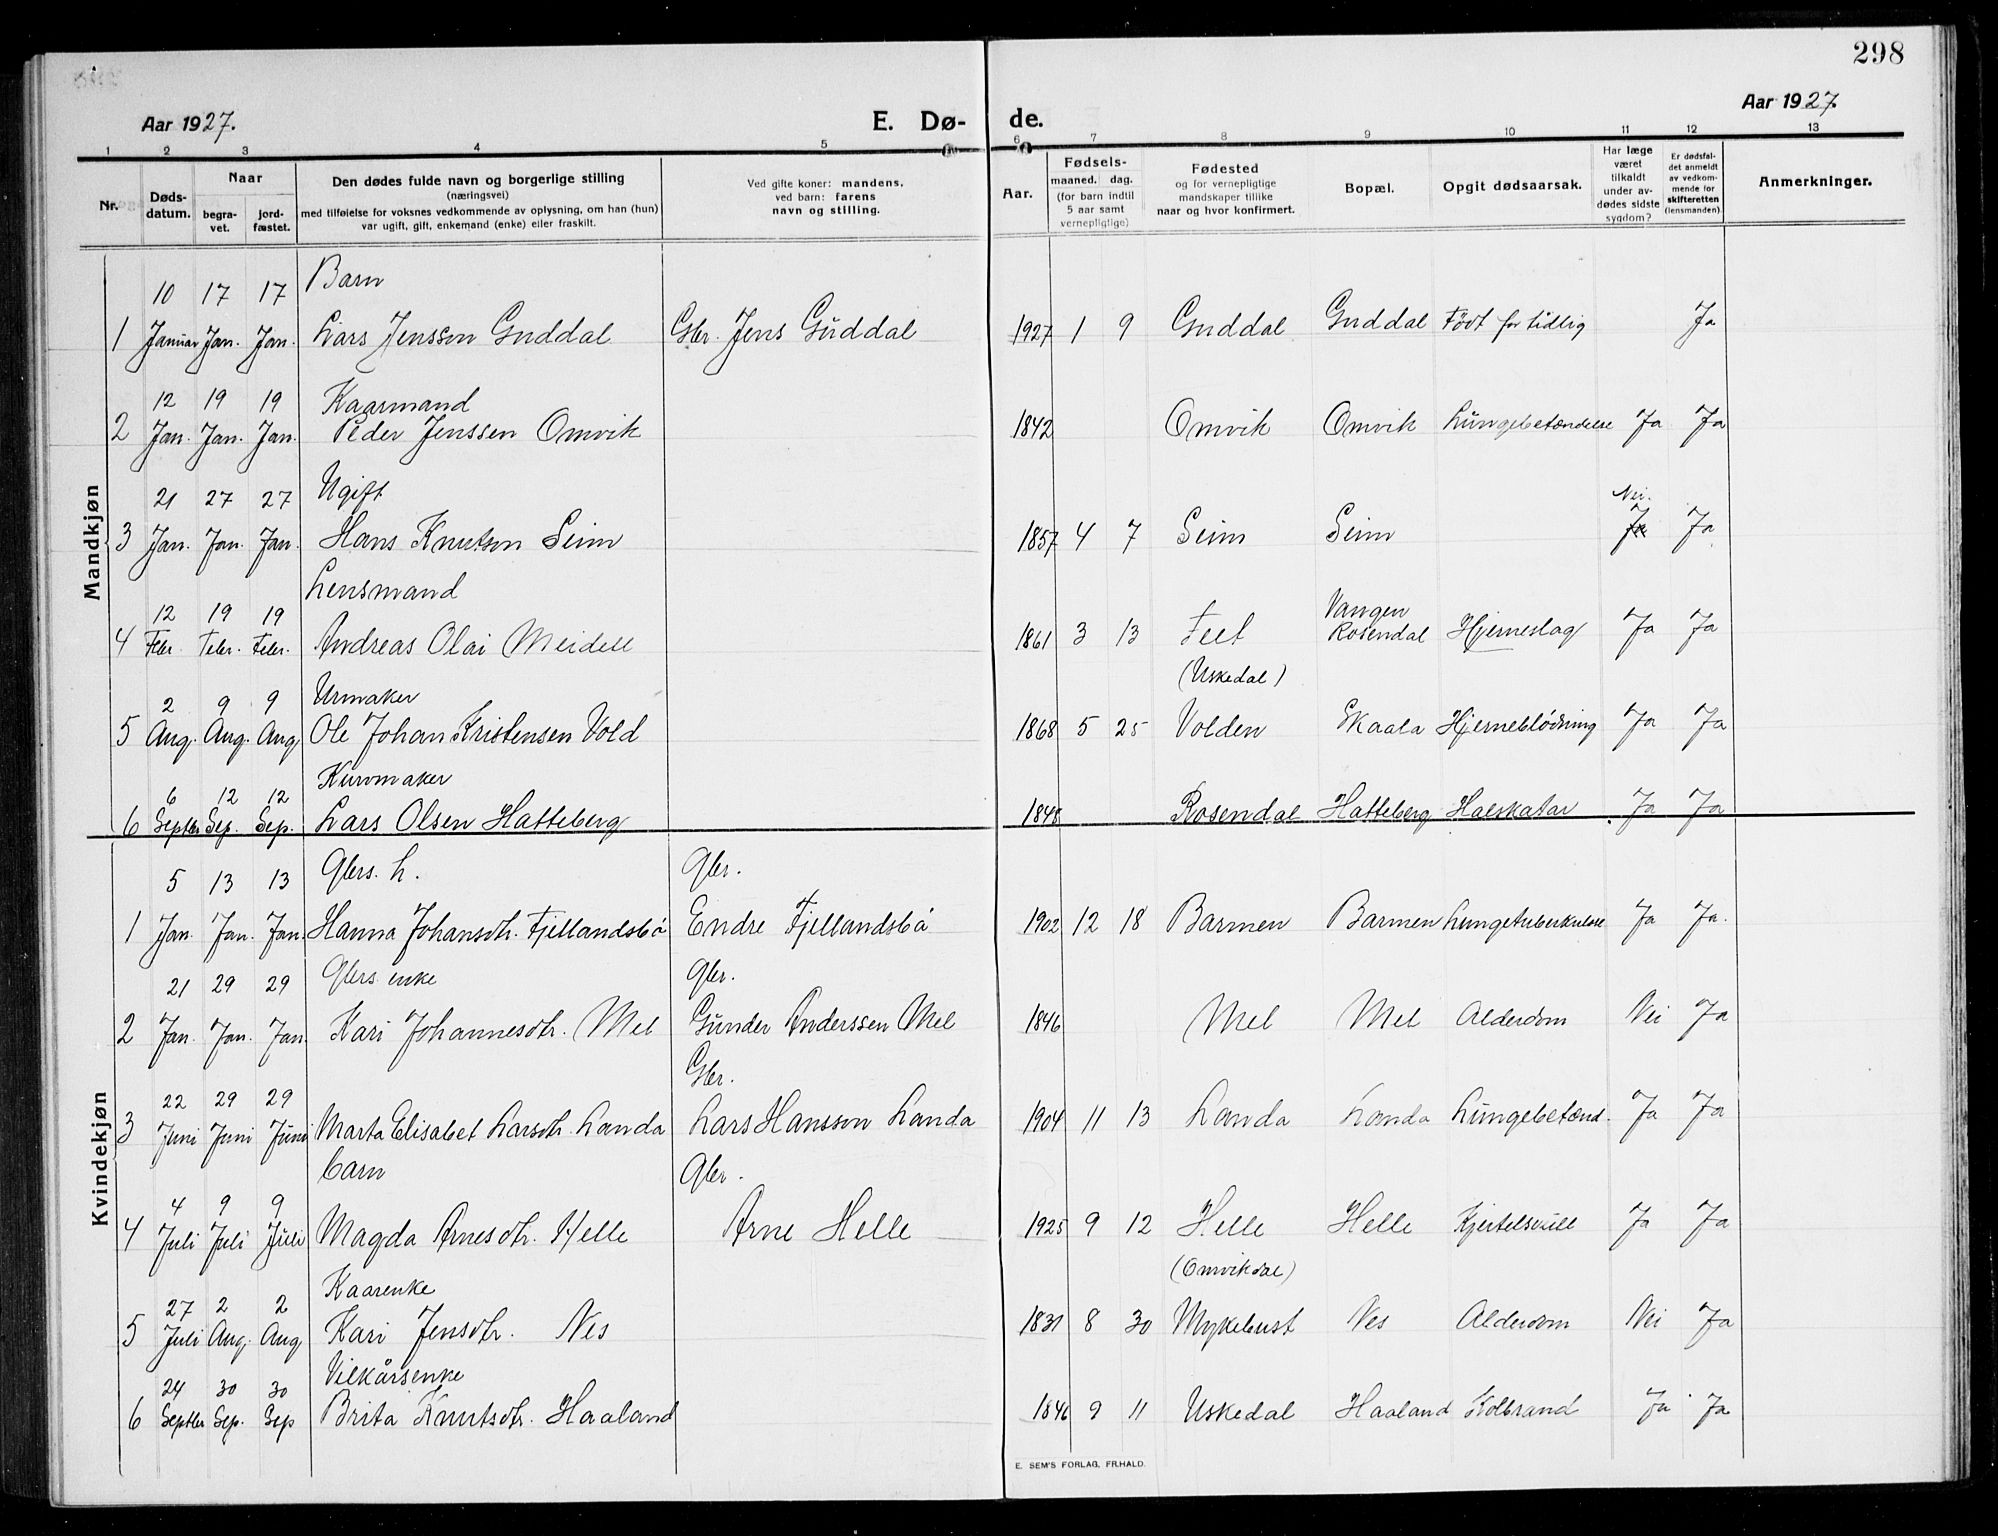 298
Aar 1927. E. Dø- de. Aar 1927.
1 2 3 4 5 6 7 8 9 10 11 12 13
Nr. Døds-datum. Naar begra-vet. jord-fæstet. Den dødes fulde navn og borgerlige stilling (næringsvei) med tilføielse for voksnes vedkommende av oplysning, om han (hun) var ugift, gift, enkemand (enke) eller fraskilt. Ved gifte koner: mandens, ved barn: farens navn og stilling. Aar. Fødsels- maaned. dag. (for barn indtil 5 aar samt vernepligtige) Fødested og for vernepligtige mandskaper tillike naar og hvor konfirmert. Bopæl. Opgit dødsaarsak. Har læge været tilkaldt under av-dødes sidste sygdom? Er dødsfal-det anmeldt av vedkom-mende for skifteretten (lensmanden). Anmerkninger.
Mandkjøn
10 17 17 Barn
1 Januar Jan. Jan. Lars Jensson Guddal Gbr. Jens Guddal 1927 1 9 Guddal Guddal Født for tidlig Ja
12 19 19 Kaarmand
2 Jan. Jan. Jan. Peder Jenssen Omvik 1842 Omvik Omvik Lungebetændelse Ja Ja
21 27 27 Ugift Nei.
3 Jan. Jan. Jan. Hans Knutson Seim 1857 4 7 Seim Seim Ja Ja
Lensmand
12 19 19 Vangen
4 Febr. Febr. Febr. Andreas Olai Meidell 1861 3 13 Feet Rosendal Hjerneslag Ja Ja
(Uskedal)
2 9 9 Urmaker
5 Aug. Aug. Aug Ole Johan Kristensen Vold 1868 5 25 Volden Skaala Hjerneblødning Ja Ja
6 12 12 Kurvmaker
6 Septbr Sep. Sep. Lars Olsen Hatteberg 1848 Rosendal Hatteberg Halskatar Ja Ja
Kvindekjøn
5 13 13 Gbrs. h. Gbr.
1 Jan. Jan. Jan. Hanna Johansdtr. Fjellandsbø Endre Fjellandsbø 1902 12 18 Barmen Barmen Lungetuberkulose Ja Ja.
21 29 29 Gbrs. enke Gbr.
2 Jan. Jan. Jan. Kari Johannesdtr. Mel Gunder Anderssen Mel 1846 Mel Mel Alderdom Nei Ja
Gbr.
22 29 29
3 Juni Juni Juni Marta Elisabet Larsdtr. Landa Lars Hansson Landa 1904 11 13 Landa Landa Lungebetænd. Ja Ja
barn Gbr.
4 9 9
4 Juli Juli Juli Magda Arnesdtr. Helle Arne Helle 1925 9 12 Helle Helle Kjertelsvulst Ja Ja
(Omvikdal)
Kaarenke
27 2 2
5 Juli Aug. Aug Kari Jensdtr. Nes 1831 8 30 Myklebust Nes Alderdom Nei Ja
Vilkårsenke
24 30 30
6 Septbr Sep. Sep Brita Knutsdtr. Haaland 1846 9 11 Uskedal Haaland Kolbrand Ja Ja
E. SEM'S FORLAG, FR.HALD.